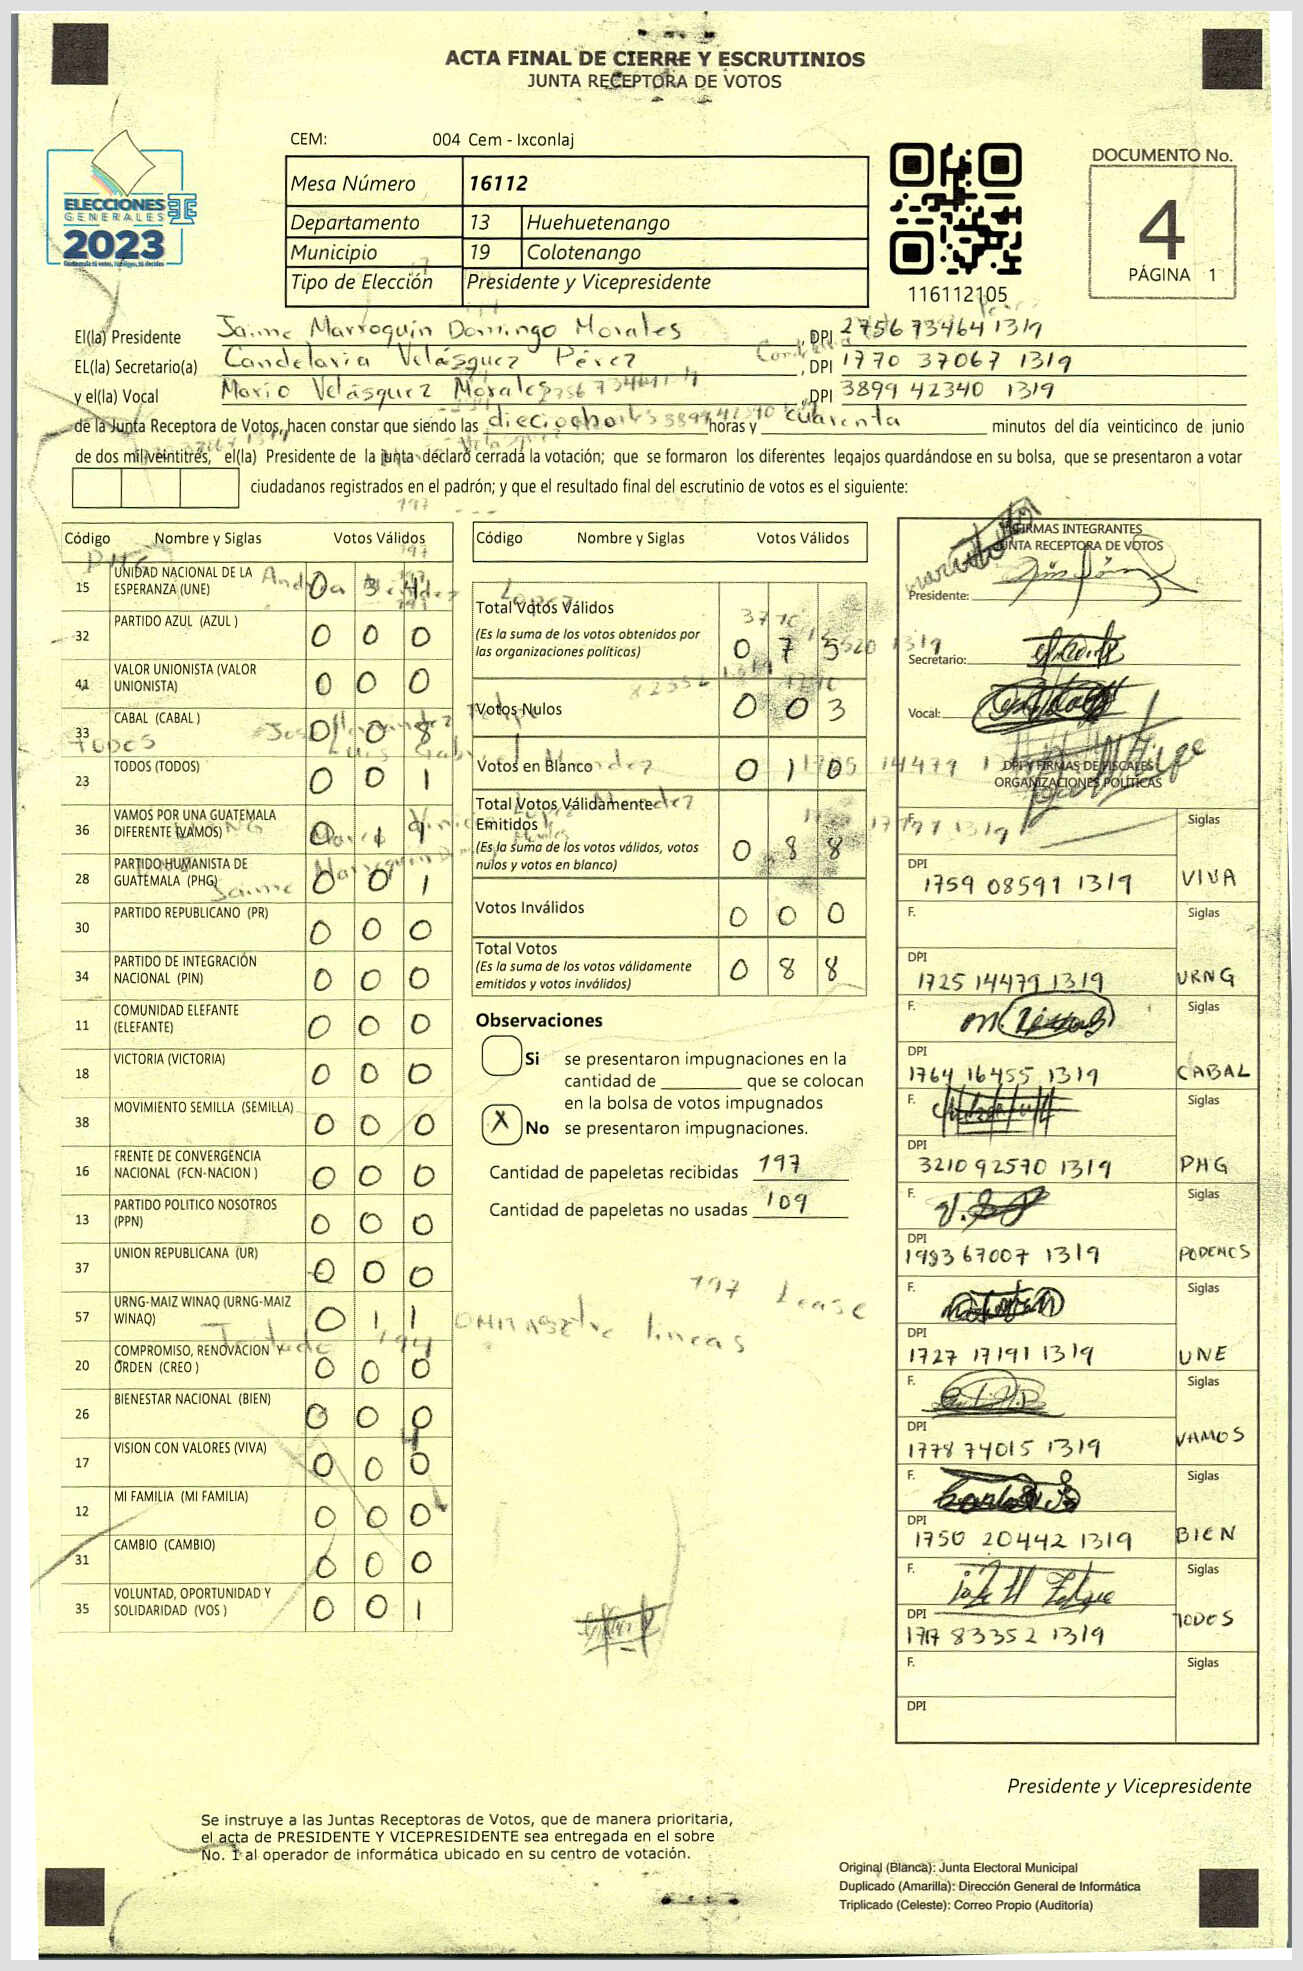 ACTA FINAL DE CIERRE Y ESCRUTINIOS
JUNTA RECEPTORA DE VOTOS
CEM: 004 Cem - Ixconlaj
Mesa Número 16112
Departamento 13 Huehuetenango
Municipio 19 Colotenango
Tipo de Elección Presidente y Vicepresidente
ELECCIONES
GENERALES
2023
116112105
DOCUMENTO No.
4
PÁGINA 1
El(la) Presidente Jaime Marroquín Domingo Morales , DPI 2756 73464 1319
EL(la) Secretario(a) Candelaria Velásquez Pérez , DPI 1770 37067 1319
y el(la) Vocal Mario Velásquez Morales , DPI 3899 42340 1319
de la Junta Receptora de Votos, hacen constar que siendo las dieciocho horas y cuarenta minutos del día veinticinco de junio
de dos mil veintitrés, el(la) Presidente de la junta declaró cerrada la votación; que se formaron los diferentes legajos guardándose en su bolsa, que se presentaron a votar
ciudadanos registrados en el padrón; y que el resultado final del escrutinio de votos es el siguiente:
Código Nombre y Siglas Votos Válidos
15 UNIDAD NACIONAL DE LA ESPERANZA (UNE) 0 3 4
32 PARTIDO AZUL (AZUL ) 0 0 0
41 VALOR UNIONISTA (VALOR UNIONISTA) 0 0 0
33 CABAL (CABAL ) 0 0 8
23 TODOS (TODOS) 0 0 1
36 VAMOS POR UNA GUATEMALA DIFERENTE (VAMOS) 0 1 9
28 PARTIDO HUMANISTA DE GUATEMALA (PHG) 0 0 1
30 PARTIDO REPUBLICANO (PR) 0 0 0
34 PARTIDO DE INTEGRACIÓN NACIONAL (PIN) 0 0 0
11 COMUNIDAD ELEFANTE (ELEFANTE) 0 0 0
18 VICTORIA (VICTORIA) 0 0 0
38 MOVIMIENTO SEMILLA (SEMILLA) 0 0 0
16 FRENTE DE CONVERGENCIA NACIONAL (FCN-NACION ) 0 0 0
13 PARTIDO POLITICO NOSOTROS (PPN) 0 0 0
37 UNION REPUBLICANA (UR) 0 0 0
57 URNG-MAIZ WINAQ (URNG-MAIZ WINAQ) 0 1 1
20 COMPROMISO, RENOVACION Y ORDEN (CREO ) 0 0 0
26 BIENESTAR NACIONAL (BIEN) 0 0 0
17 VISION CON VALORES (VIVA) 0 0 0
12 MI FAMILIA (MI FAMILIA) 0 0 0
31 CAMBIO (CAMBIO) 0 0 0
35 VOLUNTAD, OPORTUNIDAD Y SOLIDARIDAD (VOS ) 0 0 1
Código Nombre y Siglas Votos Válidos
Total Votos Válidos 0 7 5
(Es la suma de los votos obtenidos por
las organizaciones políticas)
Votos Nulos 0 0 3
Votos en Blanco 0 1 0
Total Votos Válidamente
Emitidos 0 8 8
(Es la suma de los votos válidos, votos
nulos y votos en blanco)
Votos Inválidos 0 0 0
Total Votos 0 8 8
(Es la suma de los votos válidamente
emitidos y votos inválidos)
Observaciones
Si se presentaron impugnaciones en la
cantidad de ________ que se colocan
en la bolsa de votos impugnados
X No se presentaron impugnaciones.
Cantidad de papeletas recibidas 197
Cantidad de papeletas no usadas 109
FIRMAS INTEGRANTES
JUNTA RECEPTORA DE VOTOS
Presidente:
Secretario:
Vocal:
DPI Y FIRMAS DE FISCALES
ORGANIZACIONES POLÍTICAS
F. Siglas
DPI 1759 08591 1319 VIVA
F. Siglas
DPI 1725 14479 1319 URNG
F. Siglas
DPI 1764 16455 1319 CABAL
F. Siglas
DPI 3210 92570 1319 PHG
F. Siglas
DPI 1993 67007 1319 PODEMOS
F. Siglas
DPI 1727 17191 1319 UNE
F. Siglas
DPI 1778 74015 1319 VAMOS
F. Siglas
DPI 1750 20442 1319 BIEN
F. Siglas
DPI 1717 83352 1319 TODOS
F. Siglas
DPI
Presidente y Vicepresidente
Se instruye a las Juntas Receptoras de Votos, que de manera prioritaria,
el acta de PRESIDENTE Y VICEPRESIDENTE sea entregada en el sobre
No. 1 al operador de informática ubicado en su centro de votación.
Original (Blanca): Junta Electoral Municipal
Duplicado (Amarilla): Dirección General de Informática
Triplicado (Celeste): Correo Propio (Auditoría)